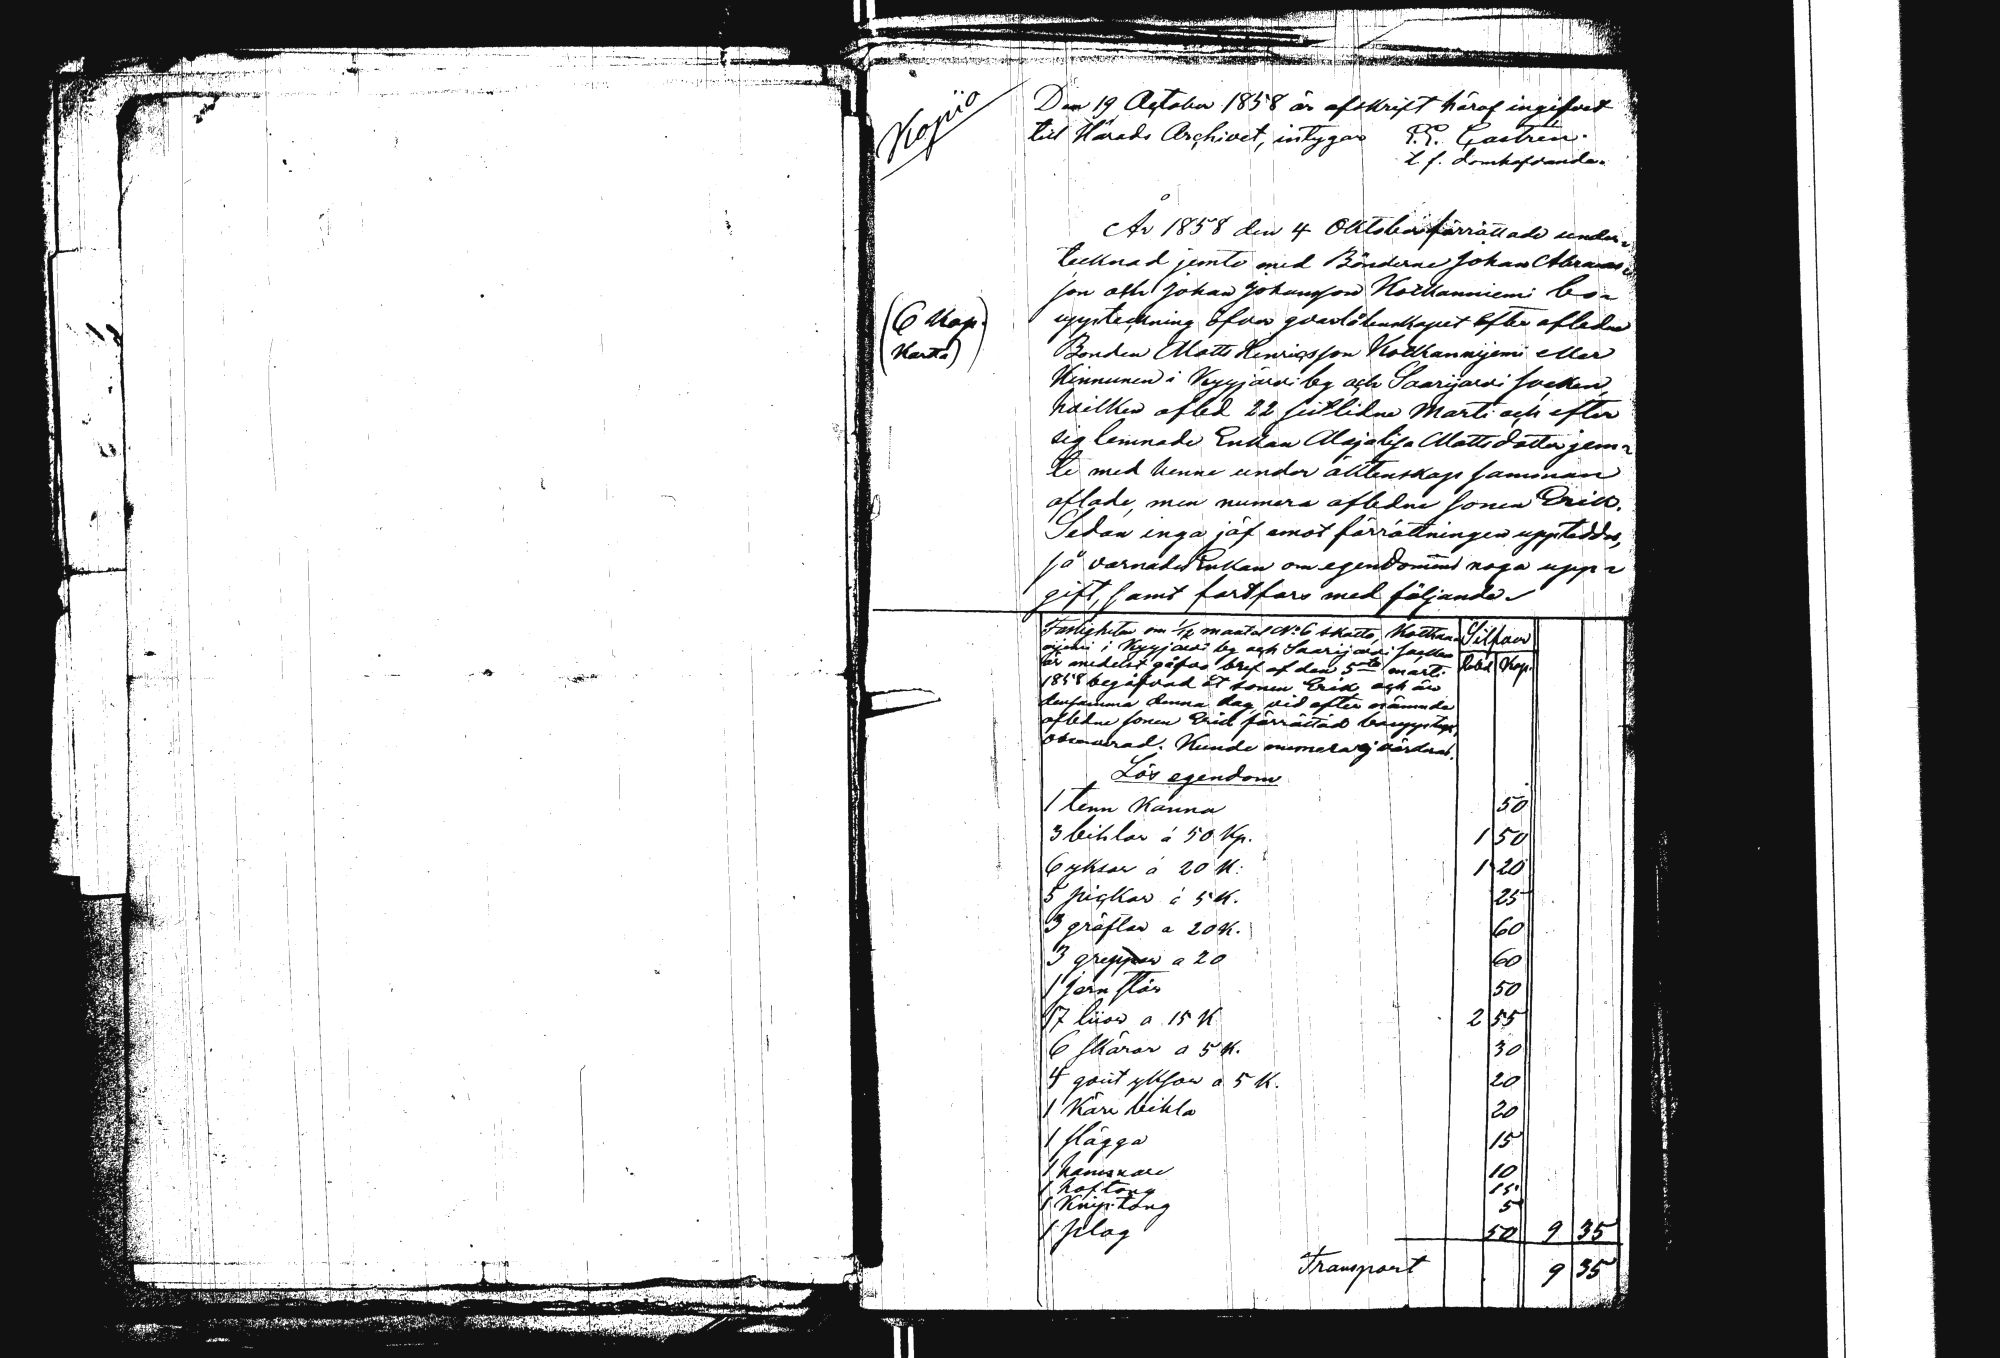 Kopiia
Den 19 October 1858 är afskrift häraf ingifvet
till Härads Archivet, intygar P. E. Gastrén.
t. f. domhafvande.
År 1858 den 4 Oktober förrättade under-
tecknad jemte med Bönderne Johan Abrams-
son och Johan Johansson Kotkanniemi bo-
uppteckning öfver qvarlåtenskapet efter aflidne
(6 Kop.
Karta)
Bonden Matts Henricsson Kotkanniemi eller
Kinnunen i Kyyjärvi by och Saarijärvi socken,
hvilken afled 22 sistlidne Marti och efter
sig lemnade Enkan Majalisa Mattsdotter jem-
te med henne under äktenskap samman
aflade, men numera afledne sonen Erik.
Sedan inga jäf emot förrättningen uppteddes,
så varnades Enkan om egendomens noga upp-
gift, samt fortfors med följande
Fastigheten om 1/2 mantal No 6 skatte, Kotkan-
niemi i Kyyjärvi by och Saarijärvi socken
är medelst gåfvo bref af den 5te marti
1858 begåfvad åt sonen Erik och är
densamma denna dag vid efter nämnde
afledne sonen Erik förrättad bouppteckn.
observerad. Kunde numera ej värderas.
Silfver
Rubl Kop.
Lös egendom
1 tenn Kanna 50
3 bihlar á 50 Kp. 1 50
6 yksar á 20 K. 1 20
5 pickar á 5 K. 25
3 gräftar a 20 K. 60
3 grepar a 20 60
1 jern stör 50
17 liior a 15 K 2 55
6 skäror a 5 K. 30
4 gout yksar a 5 K. 20
1 Käri bihla 20
1 slägga 15
1 hamare 10
1 hoftong 15
1 Kniptong 5
1 plog 50 9 35
Transport 9 35